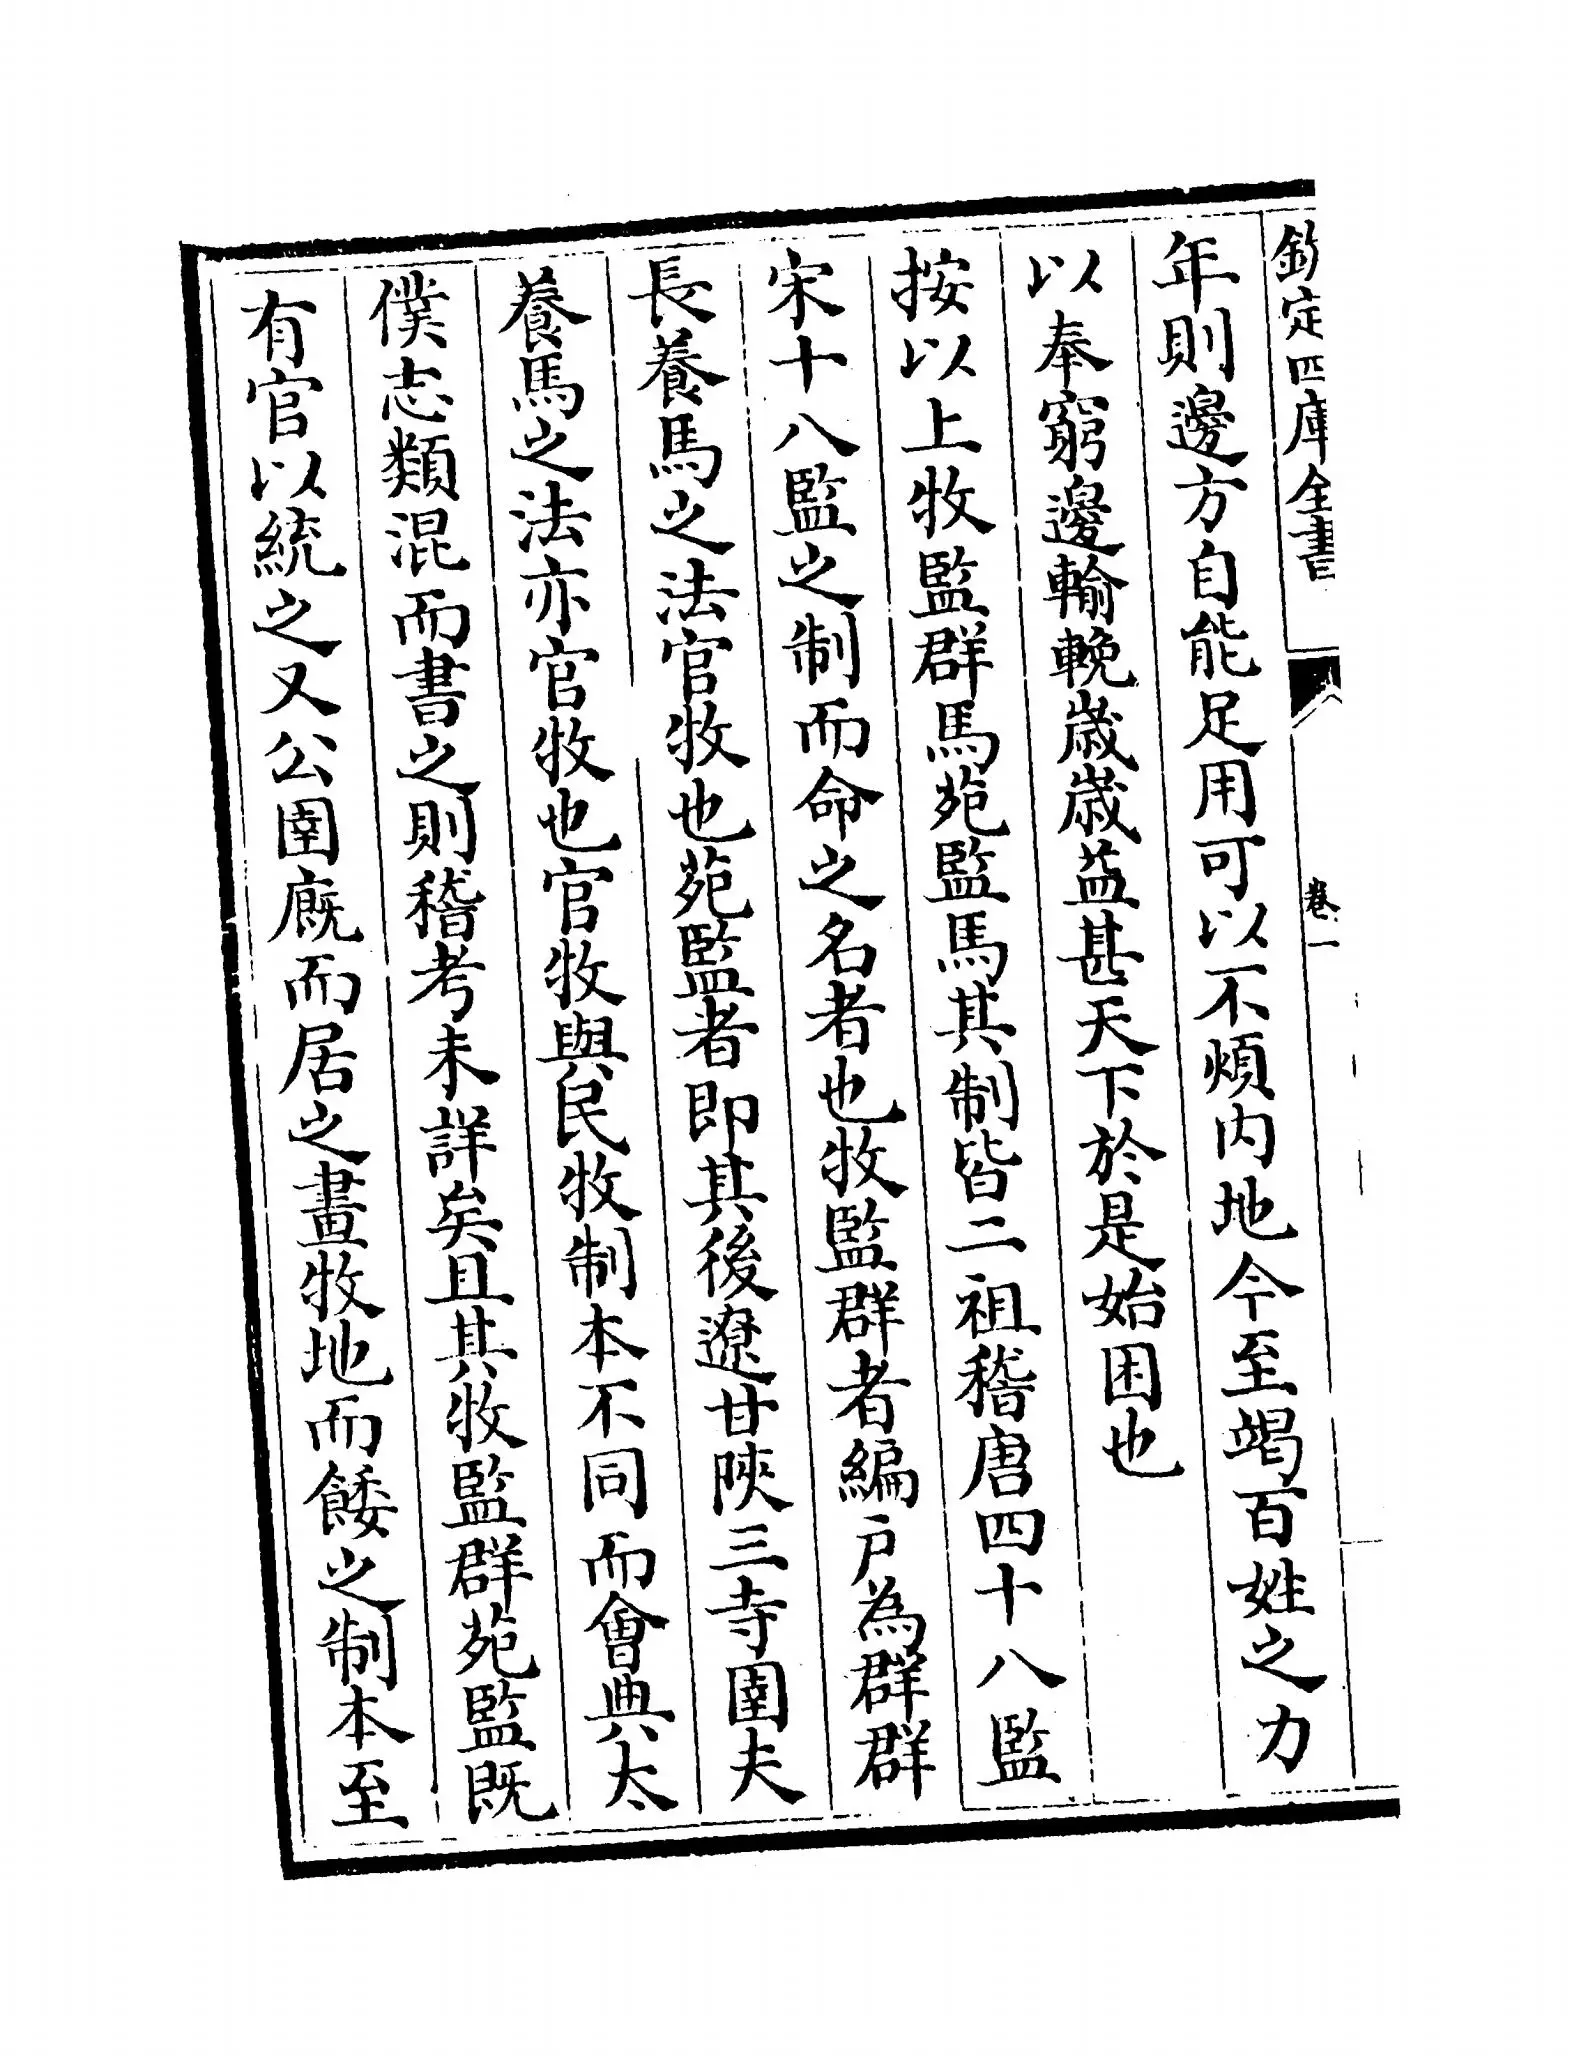 欽定四庫全書
卷一
年則邊方自能足用可以不煩内地今至竭百姓之力
以奉窮邊輸輓歳歳益甚天下於是始困也
按以上牧監群馬苑監馬其制皆二祖稽唐四十八監
宋十八監之制而命之名者也牧監群者編戸為群群
長養馬之法官牧也苑監者即其後遼甘陜三寺圉夫
養馬之法亦官牧也官牧與民牧制本不同而會典太
僕志類混而書之則稽考未詳矣且其牧監群苑監既
有官以統之又公圉廐而居之畫牧地而餧之制本至